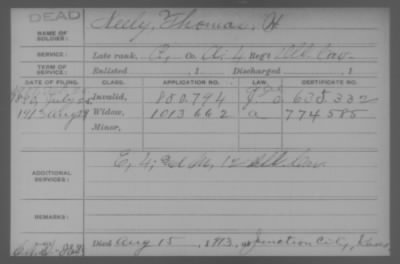 DEAD
NAME OF SOLDIER: Neely, Thomas, H
SERVICE: Late rank, Co. A, 4 Reg't Ill. Cav.
TERM OF SERVICE: Enlisted , 1 Discharged , 1
DATE OF FILING. CLASS. APPLICATION NO. LAW. CERTIFICATE NO.
July Invalid, 850.794 638.332
1913 Aug 29 Widow, 1013662 a 774585
Minor,
ADDITIONAL SERVICES: 12 Ill. Cav.
REMARKS:
Died Aug 15, 1913, at Junction City, Kans